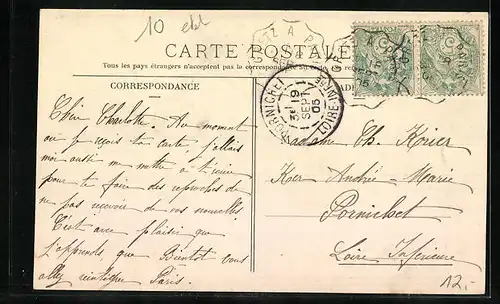 10
CARTE POSTALE
Tous les pays étrangers n'acceptent pas la correspondance au
CORRESPONDANCE
PORNICHET
3E 19
SEPT
05
LOIRE INFRE
Chère Charlotte. Au moment
où je reçois ta carte, j'allais
moi aussi me mettre à t'écrire
pour te faire des reproches de
ne pas recevoir de vos nouvelles
C'est avec plaisir que
j'apprends, que Bientôt vous
allez réintégrer Paris.
Madame Ch. Korier
Ker André Marie
Pornichet
Loire Inférieure
12.-